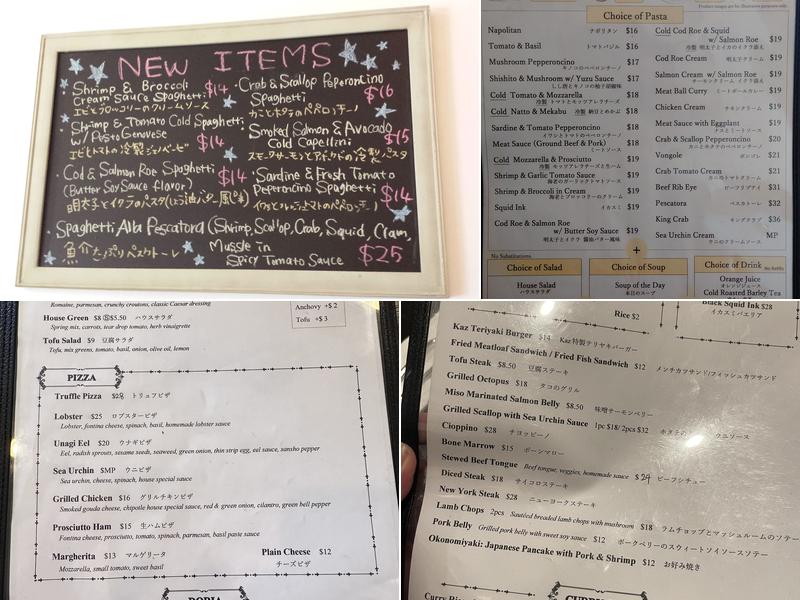 NEW ITEMS
Shrimp & Broccoli
Cream Sauce Spaghetti $14
エビとブロッコリーのクリームソース
Shrimp & Tomato Cold Spaghetti
w/ Pesto Genovese $14
エビとトマトの冷製ジェノベーゼ
Cod & Salmon Roe Spaghetti $14
(Butter Soy Sauce flavor)
明太子とイクラのパスタ(しょう油バター風味)
Crab & Scallop Peperoncino
Spaghetti $16
カニとホタテのペペロンチーノ
Smoked Salmon & Avocado
Cold Capellini $15
スモークサーモンとアボカドの冷製パスタ
Sardine & Fresh Tomato
Peperoncino Spaghetti $14
Spaghetti Alla Pescatora (Shrimp, Scallop, Crab, Squid, Clam,
Mussle in
Spicy Tomato Sauce $25
魚介たっぷりペスカトーレ
Product images are for illustration purposes only.
Choice of Pasta
Napolitan ナポリタン $16
Tomato & Basil トマトバジル $16
Mushroom Pepperoncino $17
キノコのペペロンチーノ
Shishito & Mushroom w/ Yuzu Sauce $17
しし唐とキノコの柚子胡椒味
Cold Tomato & Mozzarella $18
冷製 トマトとモッツアレラチーズ
Cold Natto & Mekabu 冷製 納豆とめかぶ $18
Sardine & Tomato Pepperoncino $18
イワシとトマトのペペロンチーノ
Meat Sauce (Ground Beef & Pork) $18
ミートソース
Cold Mozzarella & Prosciutto $19
冷製 モッツアレラチーズと生ハム
Shrimp & Garlic Tomato Sauce $19
海老のガーリックトマトソース
Shrimp & Broccoli in Cream $19
海老とブロッコリーのクリーム
Squid Ink イカスミ $19
Cod Roe & Salmon Roe
w/ Butter Soy Sauce $19
明太子とイクラ 醤油バター風味
Cold Cod Roe & Squid
w/ Salmon Roe $19
冷製 明太子とイカのイクラ添え
Cod Roe Cream 明太クリーム $19
Salmon Cream w/ Salmon Roe $19
サーモンクリーム イクラ添え
Meat Ball Curry ミートボールカレー $19
Chicken Cream チキンクリーム $19
Meat Sauce with Eggplant $19
ナスとミートソース
Crab & Scallop Pepperoncino $20
カニとホタテのペペロンチーノ
Vongole ボンゴレ $21
Crab Tomato Cream $21
カニのトマトクリーム
Beef Rib Eye ビーフリブアイ $31
Pescatora ペスカトーレ $32
King Crab キングクラブ $36
Sea Urchin Cream MP
ウニのクリームソース
No Substitutions
+
Choice of Salad
House Salad
ハウスサラダ
Choice of Soup
Soup of the Day
本日のスープ
Choice of Drink
No Refills
Orange Juice
オレンジジュース
Cold Roasted Barley Tea
Romaine, parmesan, crunchy croutons, classic Caesar dressing
House Green $8 Ⓢ$5.50 ハウスサラダ
Spring mix, carrots, tear drop tomato, herb vinaigrette
Tofu Salad $9 豆腐サラダ
Tofu, mix greens, tomato, basil, onion, olive oil, lemon
Anchovy +$ 2
Tofu +$ 3
PIZZA
Truffle Pizza $28 トリュフピザ
Lobster $25 ロブスターピザ
Lobster, fontina cheese, spinach, basil, homemade lobster sauce
Unagi Eel $20 ウナギピザ
Eel, radish sprouts, sesame seeds, seaweed, green onion, thin strip egg, eel sauce, sansho pepper
Sea Urchin $MP ウニピザ
Sea urchin, cheese, spinach, house special sauce
Grilled Chicken $16 グリルチキンピザ
Smoked gouda cheese, chipotle house special sauce, red & green onion, cilantro, green bell pepper
Prosciutto Ham $15 生ハムピザ
Fontina cheese, prosciutto, tomato, spinach, parmesan, basil paste sauce
Margherita $13 マルゲリータ
Mozzarella, small tomato, sweet basil
Plain Cheese $12
チーズピザ
DORIA
Rice $2
Black Squid Ink $28
イカスミパエリア
Kaz Teriyaki Burger $14 Kaz特製テリヤキバーガー
Fried Meatloaf Sandwich / Fried Fish Sandwich $12 メンチカツサンド/フィッシュカツサンド
Tofu Steak $8.50 豆腐ステーキ
Grilled Octopus $18 タコのグリル
Miso Marinated Salmon Belly $8.50 味噌サーモンベリー
Grilled Scallop with Sea Urchin Sauce 1pc $18/ 2pcs $32 ホタテの ウニソース
Cioppino $28 チヨッピーノ
Bone Marrow $15 ボーンマロー
Stewed Beef Tongue Beef tongue, veggies, homemade sauce $24 ビーフシチュー
Diced Steak $18 サイコロステーキ
New York Steak $28 ニューヨークステーキ
Lamb Chops 2pcs Sautéed breaded lamb chops with mushroom $18 ラムチョップとマッシュルームのソテー
Pork Belly Grilled pork belly with sweet soy sauce $12 ポークベリーのスウィートソイソースソテー
Okonomiyaki: Japanese Pancake with Pork & Shrimp $12 お好み焼き
CURRY